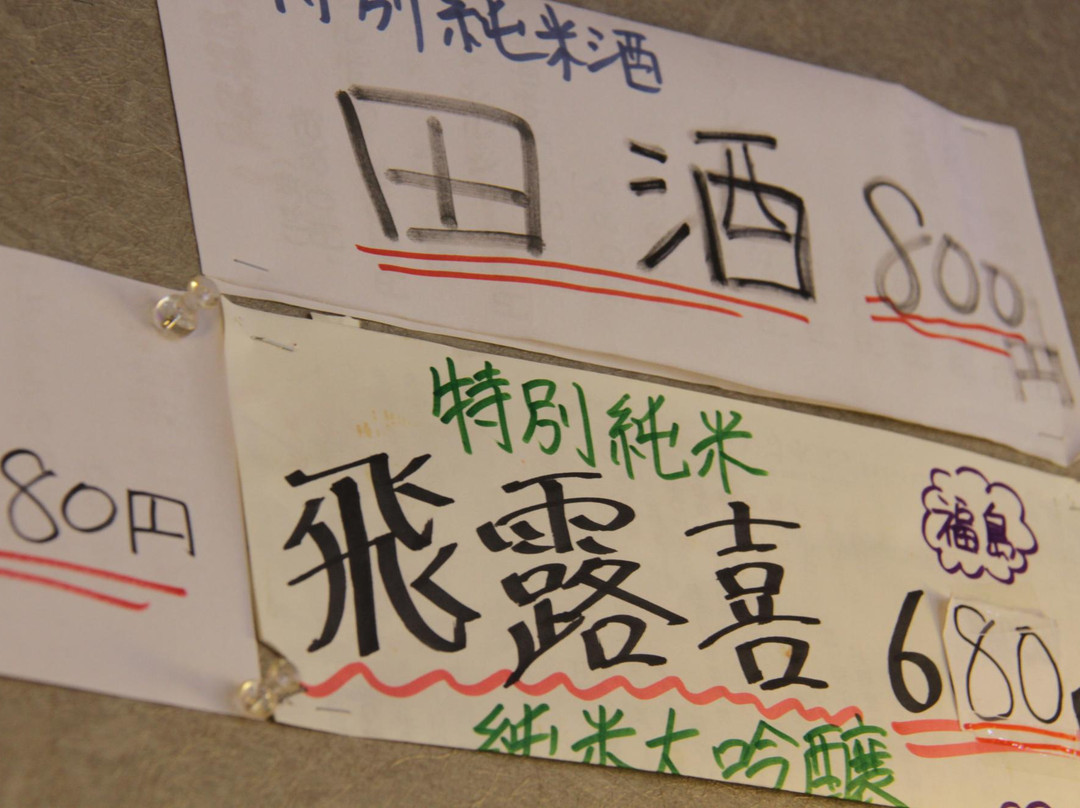 特別純米酒
田酒 800円
80円
特別純米
福島
飛露喜 680
純米大吟醸